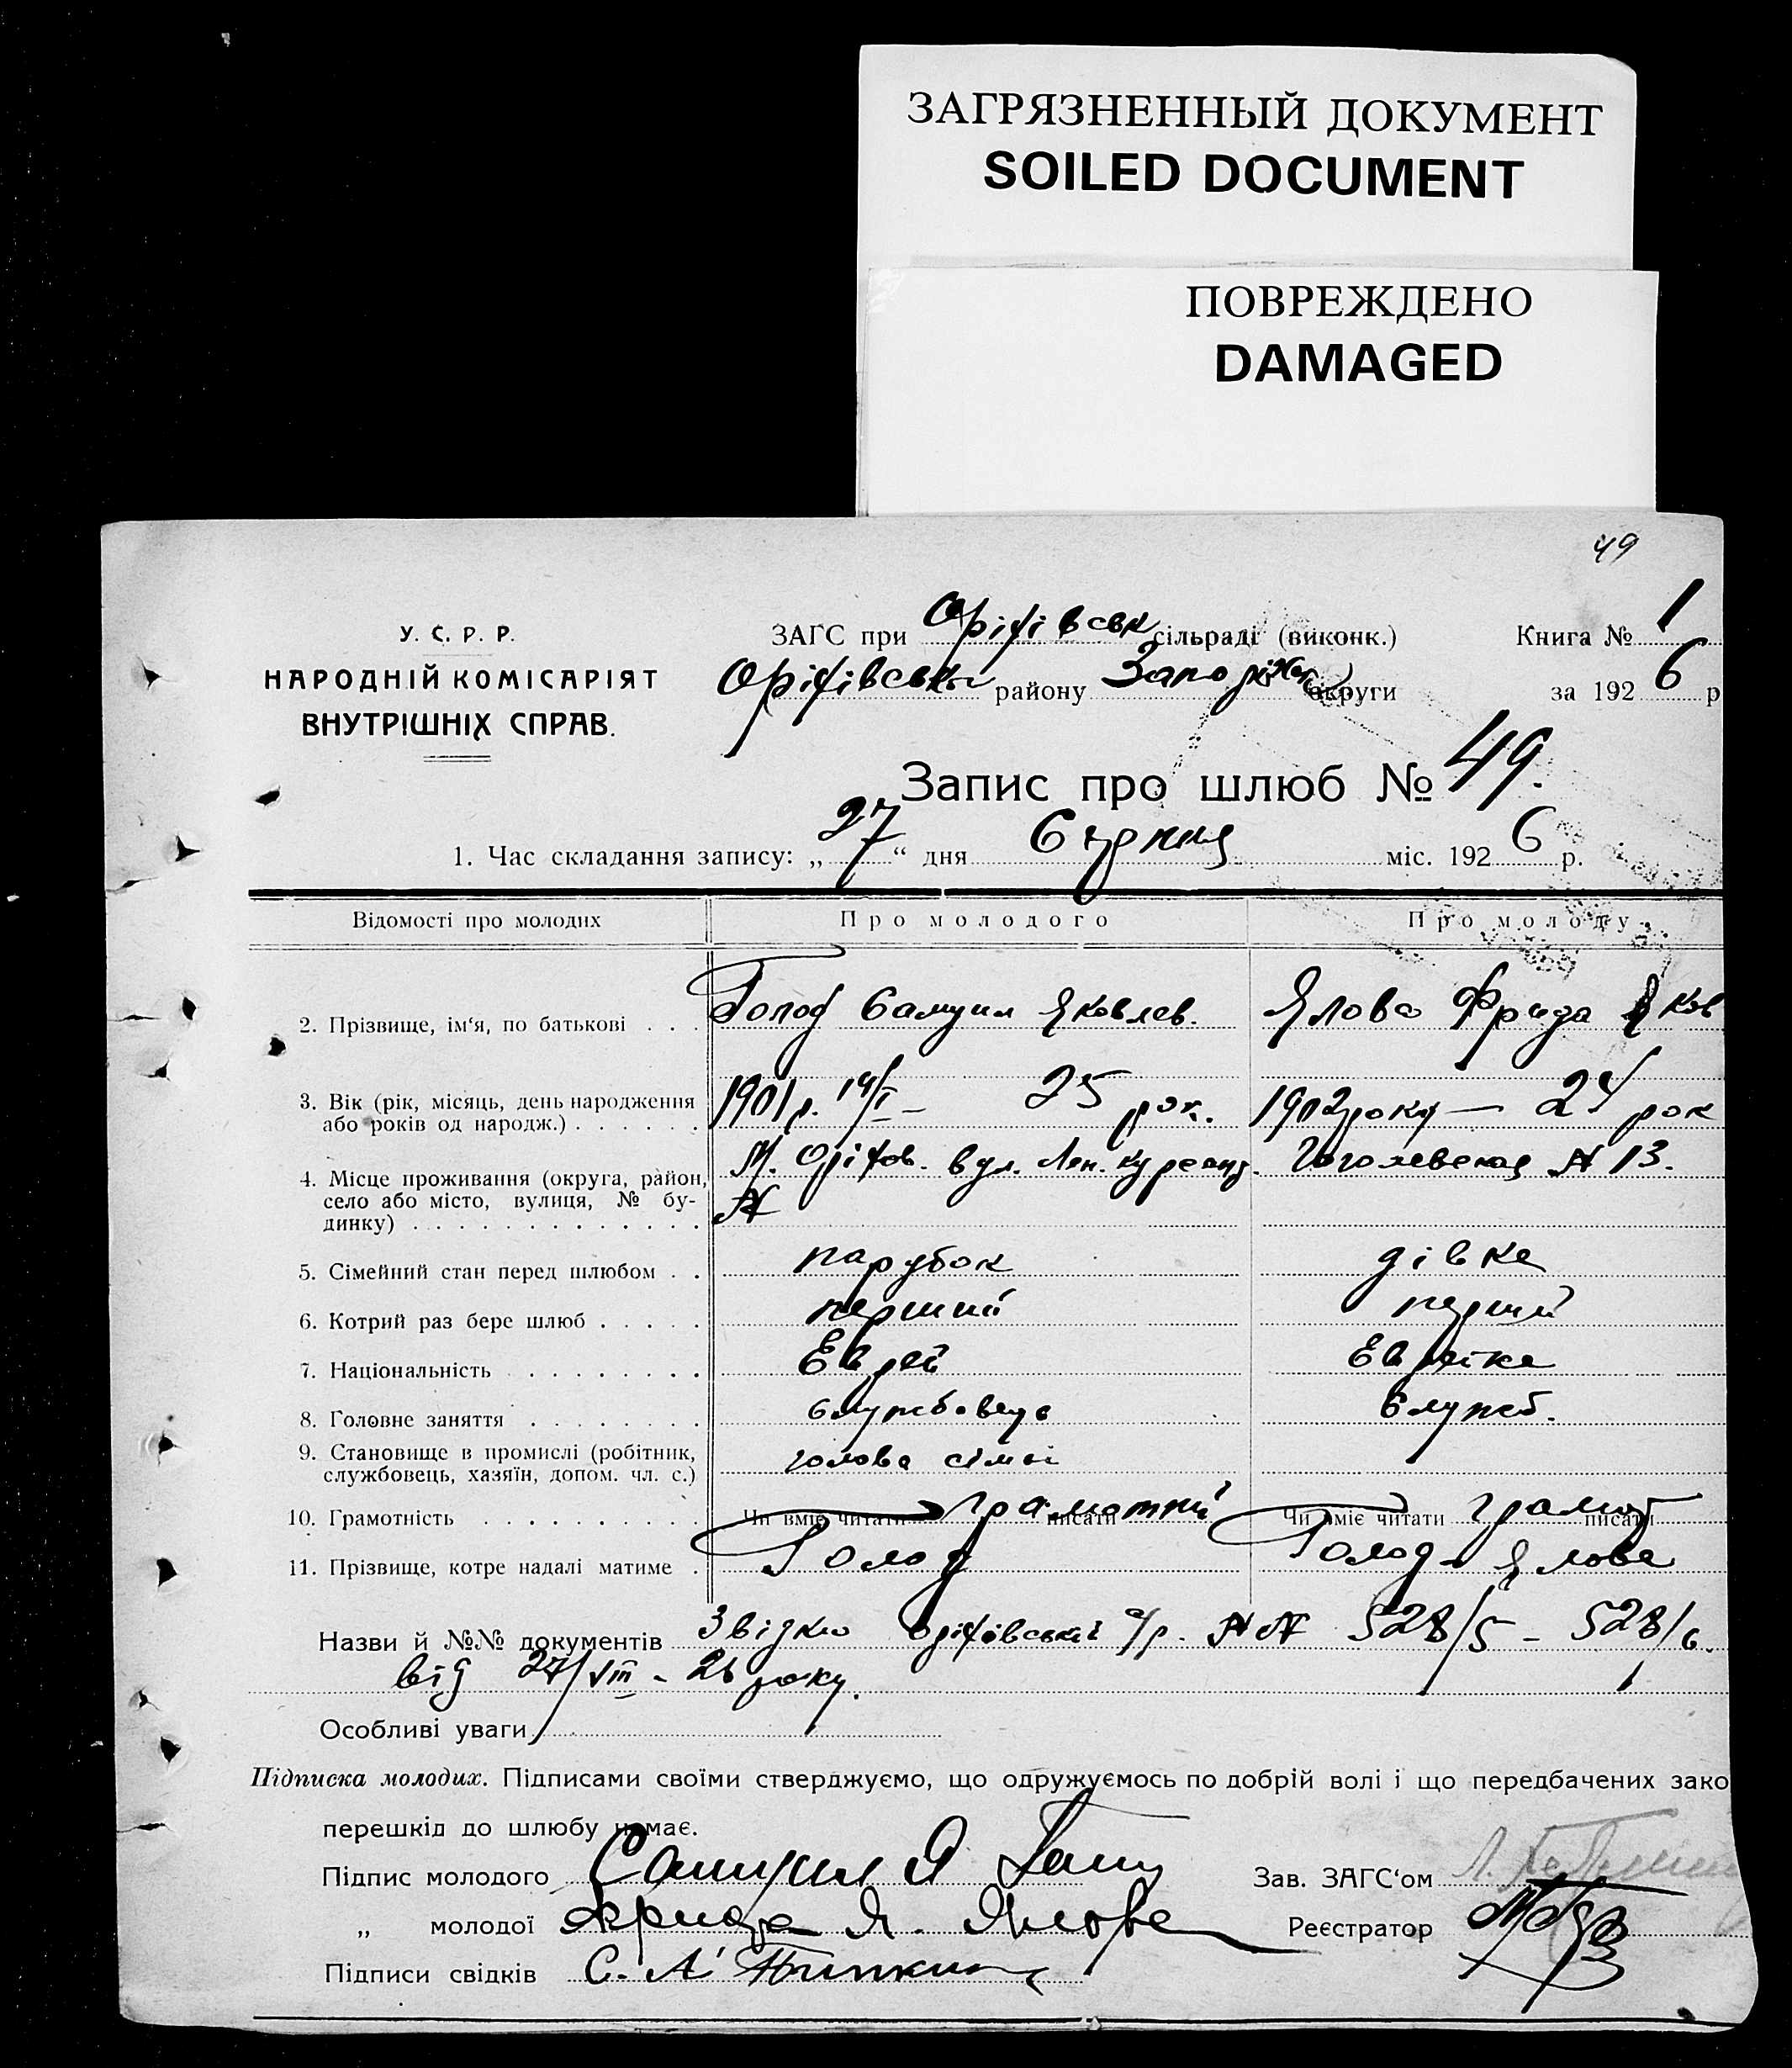 ЗАГРЯЗНЕННЫЙ ДОКУМЕНТ
SOILED DOCUMENT
ПОВРЕЖДЕНО
DAMAGED
49
У. С. Р. Р.
НАРОДНІЙ КОМІСАРІЯТ
ВНУТРІШНІХ СПРАВ.
ЗАГС при Оріхівськ сільраді (виконк.) Книга № 1
Оріхівськ району Запоріжськ округи за 1926 р
Запис про шлюб № 49.
1. Час складання запису: „27“ дня Серпня міс. 1926 р.
Відомості про молодих Про молодого Про молоду
2. Прізвище, ім‘я, по батькові . . . Голод Самуил Яковлев. Ялова Фрида Яков
3. Вік (рік, місяць, день народження
або років од народж.) . . . . . . 1901 р. 14/I – 25 рок. 1902 року — 24 рок
4. Місце проживання (округа, район, М. Оріхов. вул. Лен. курсанд. Гоголевская № 13.
село або місто, вулиця, № бу- №
динку) . . . . . . . . . . . . .
5. Сімейний стан перед шлюбом . . парубок дівка
6. Котрий раз бере шлюб . . . . . перший перший
7. Національність . . . . . . . . Еврей Еврейка
8. Головне заняття . . . . . . . . службовець Служб.
9. Становище в промислі (робітник,
службовець, хазяїн, допом. чл. с.) голова сімьї
10. Грамотність . . . . . . . . . . Чи вміє читати грамотний писати Чи вміє читати грамот писати
11. Прізвище, котре надалі матиме . Голод Голод-Ялова
Назви й №№ документів Звідки Оріхівської с/р. №№ 528/5 – 528/6.
від 27/VIII – 26 року.
Особливі уваги
Підписка молодих. Підписами своїми стверджуємо, що одружуємось по добрій волі і що передбачених зако
перешкід до шлюбу немає.
Підпис молодого Самуил Я Зав. ЗАГС‘ом
„ молодої Фрида Я. Ялова Реєстратор
Підписи свідків С. А.